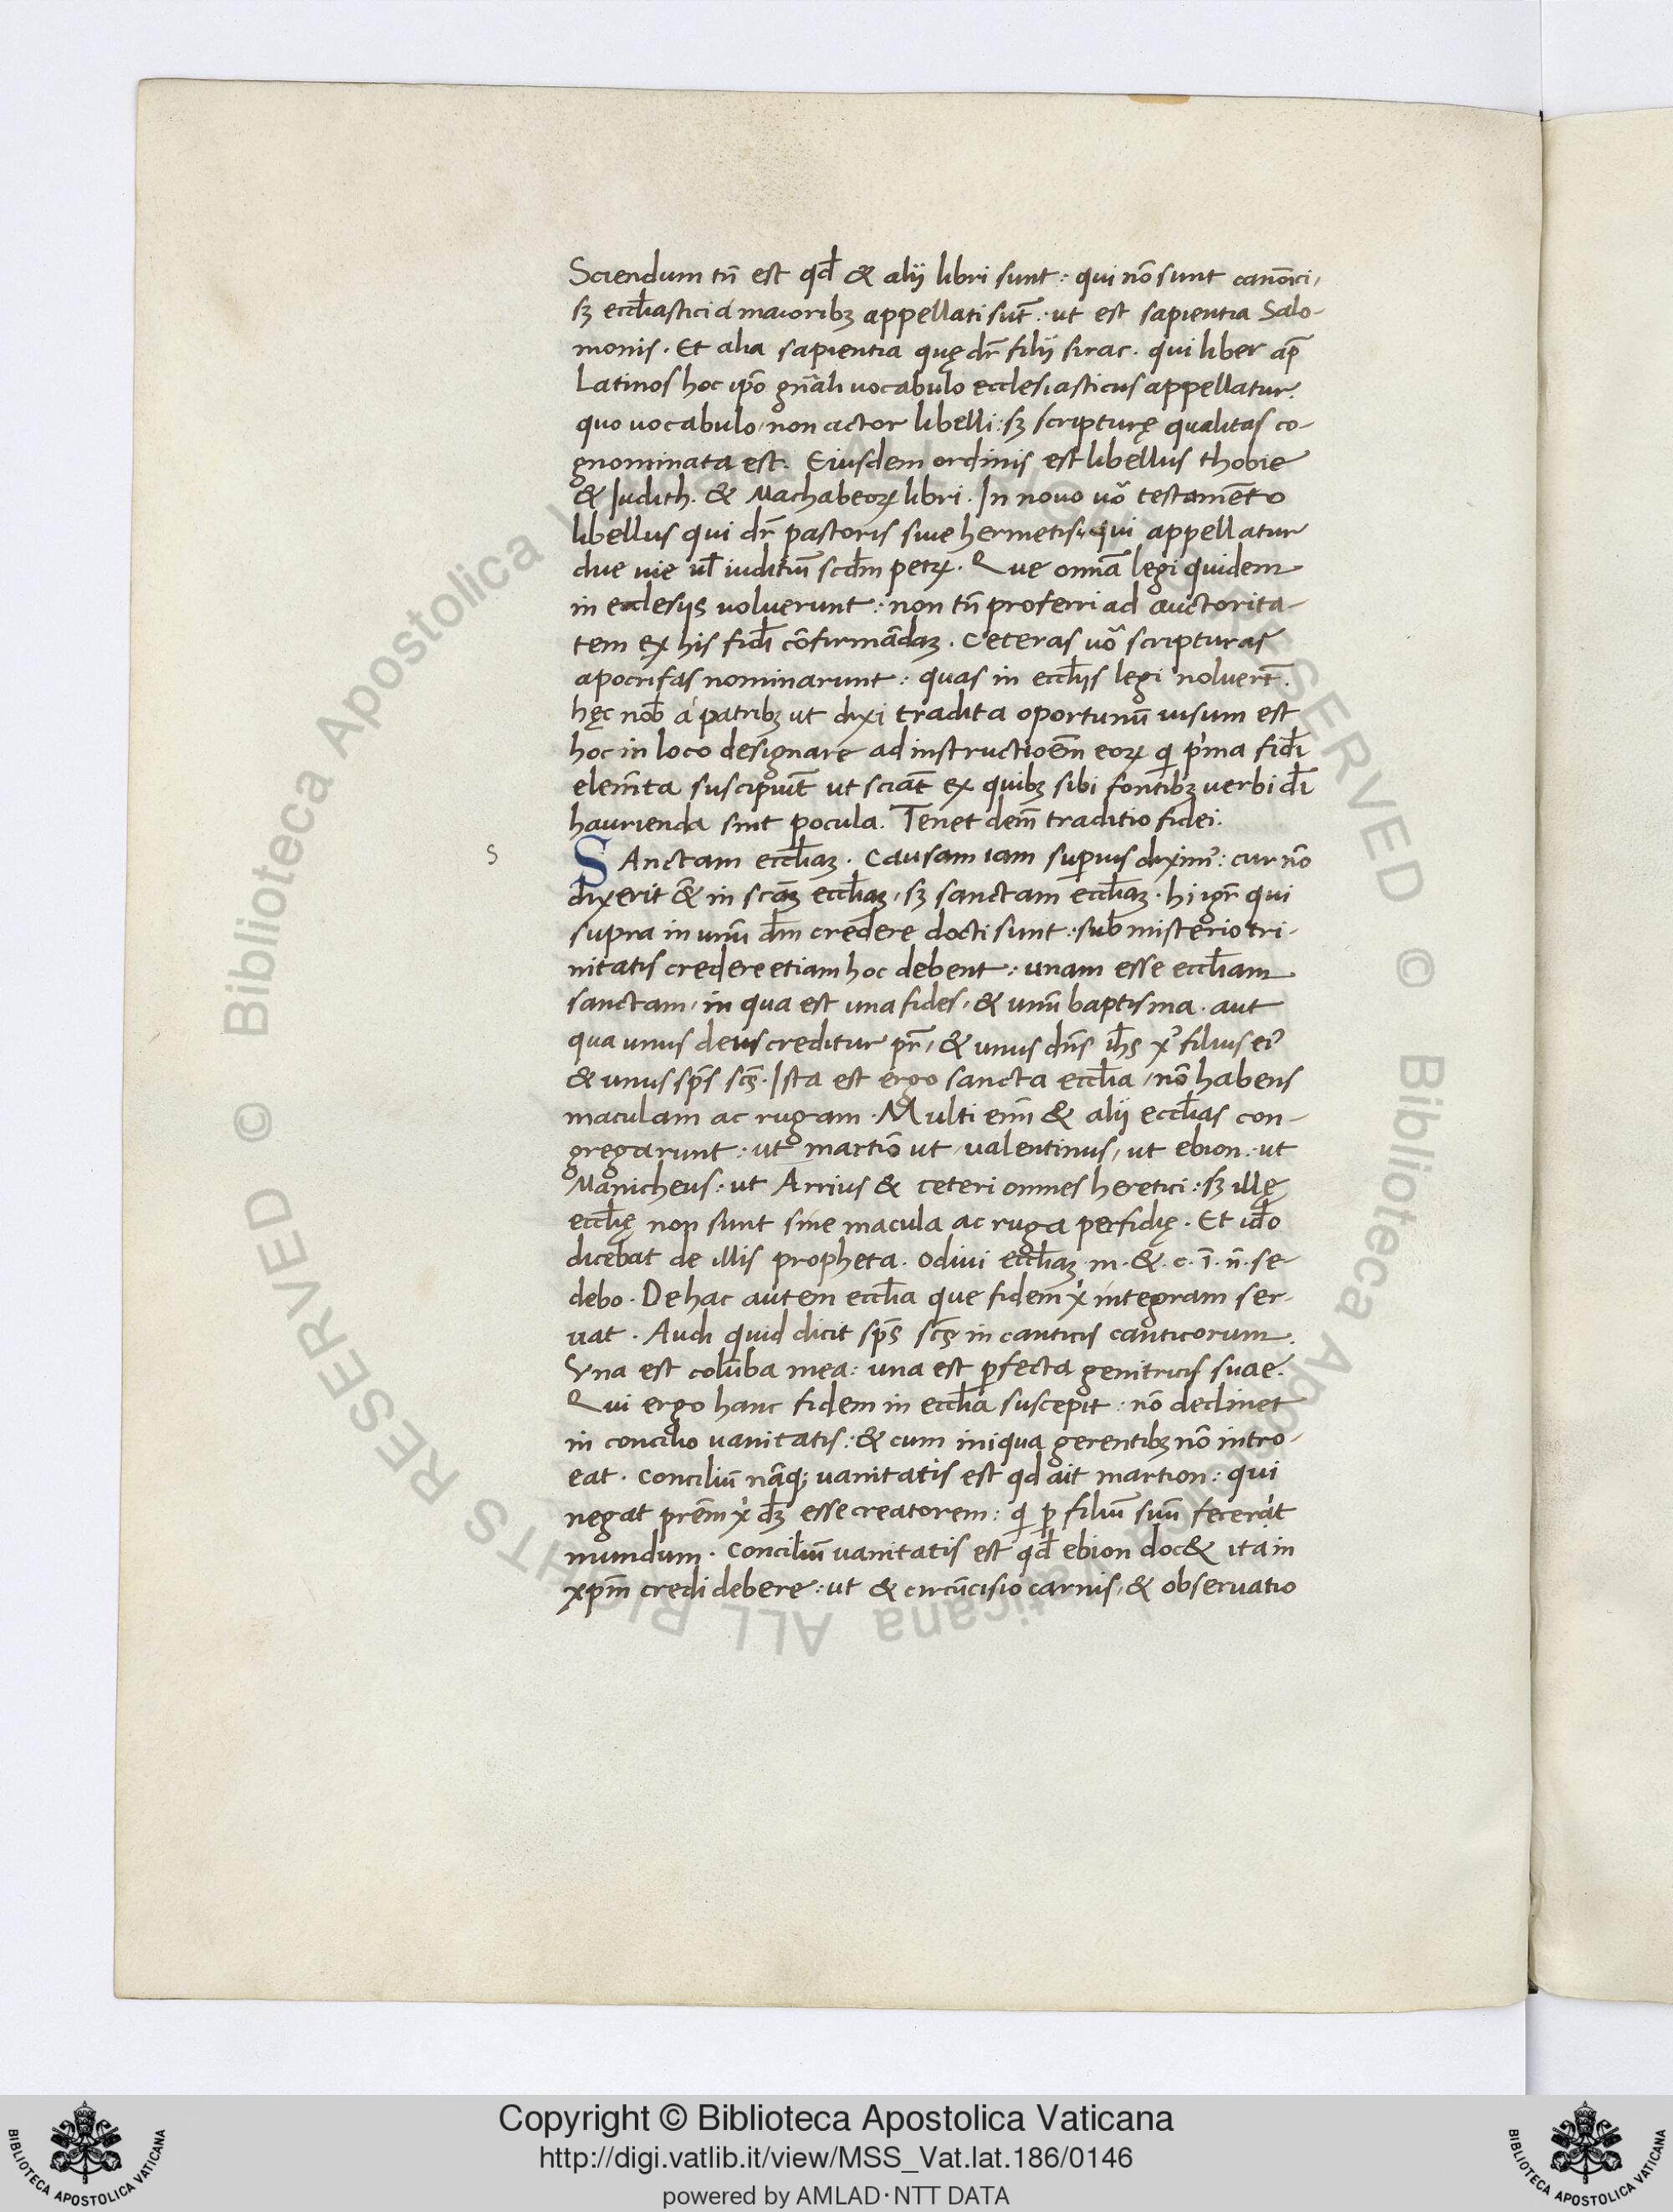 Sciendum tñ est qđ & alii libri sunt: qui nõ sunt canõici,
sꝫ eccl̃iastici a maioribꝫ appellati sũt: ut est sapientia Salo-
monis. Et alia sapientia quę dr̃ filii sirac. qui liber ap̃
Latinos hoc ip̃o gñali uocabulo ecclesiasticus appellatur.
quo uocabulo, non actor libelli: sꝫ scripturę qualitas co-
gnominata est. Eiusdem ordinis est libellus thobie
& Judith. & Machabeoꝝ libri. In nouo uõ testamẽto
libellus qui dr̃ pastoris siue hermetis, qui appellatur
due uie ul̃ iuditiũ scđm petꝝ. Que omã legi quidem
in eclesiis uoluerunt: non tñ proferri ad auctorita-
tem ex his fidi̾ cõfirmãdaꝫ. Ceteras uõ scripturas
apocrifas nominarunt: quas in eccl̃iis legi noluerũt.
hęc nob̃ a patribꝫ ut dixi tradita oportunũ uisum est
hoc in loco designare ad instructioẽm eoꝝ q̇ pͥma fidi̾
elem̃ta suscipiũt ut sciãt ex quibꝫ sibi fontibꝫ uerbi di̾
haurienda sint pocula. Tenet dem̃ traditio fidei.
S
SAnctam eccl̃iaꝫ. Causam iam superius diximꝰ: cur nõ
dixerit & in scãꝫ eccl̃iaꝫ, sꝫ sanctam eccl̃iaꝫ. hi igr̃ qui
supra in unũ dm̃ credere docti sunt: sub misterio tri-
nitatis credere etiam hoc debent: unam esse eccl̃iam
sanctam, in qua est una fides, & unũ baptisma. aut
qua unus deus creditur pr̃, & unus dñs ih̃s xꝰ filius eiꝰ
& unus sp̃s sc̃s. Ista est ergo sancta eccl̃ia, nõ habens
maculam ac rugam. Multi enĩ & alii eccl̃ias con-
gregarunt: ut martiõ ut, ualentinus, ut ebion. ut
Manicheus: ut Arrius & ceteri omnes heretici: sꝫ illę
eccl̃ię non sunt sine macula ac ruga perfidię. Et id̃o
dicebat de illis propheta. Odiui eccl̃iaꝫ. m. &. c. ĩ. ñ. se-
debo. De hac autem eccl̃ia que fidem xͥ integram ser-
uat. Audi quid dicit sp̃s sc̃s in canticis canticorum.
Vna est colũba mea: una est ꝑfecta genitricis suae.
Qui ergo hanc fidem in eccl̃ia suscepit: nõ declinet
in concilio uanitatis: & cum iniqua gerentibꝫ nõ intro-
eat. Conciliũ nãq; uanitatis est qd ait martion: qui
negat prẽm xͥ dꝫ esse creatorem: q̇ ꝑ filiũ suũ fecerat
mundum. Conciliũ uanitatis est qđ ebion doc& ita in
xp̃m credi debere: ut & circũcisio carnis, & obseruatio
Copyright © Biblioteca Apostolica Vaticana
http://digi.vatlib.it/view/MSS_Vat.lat.186/0146
powered by AMLAD·NTT DATA